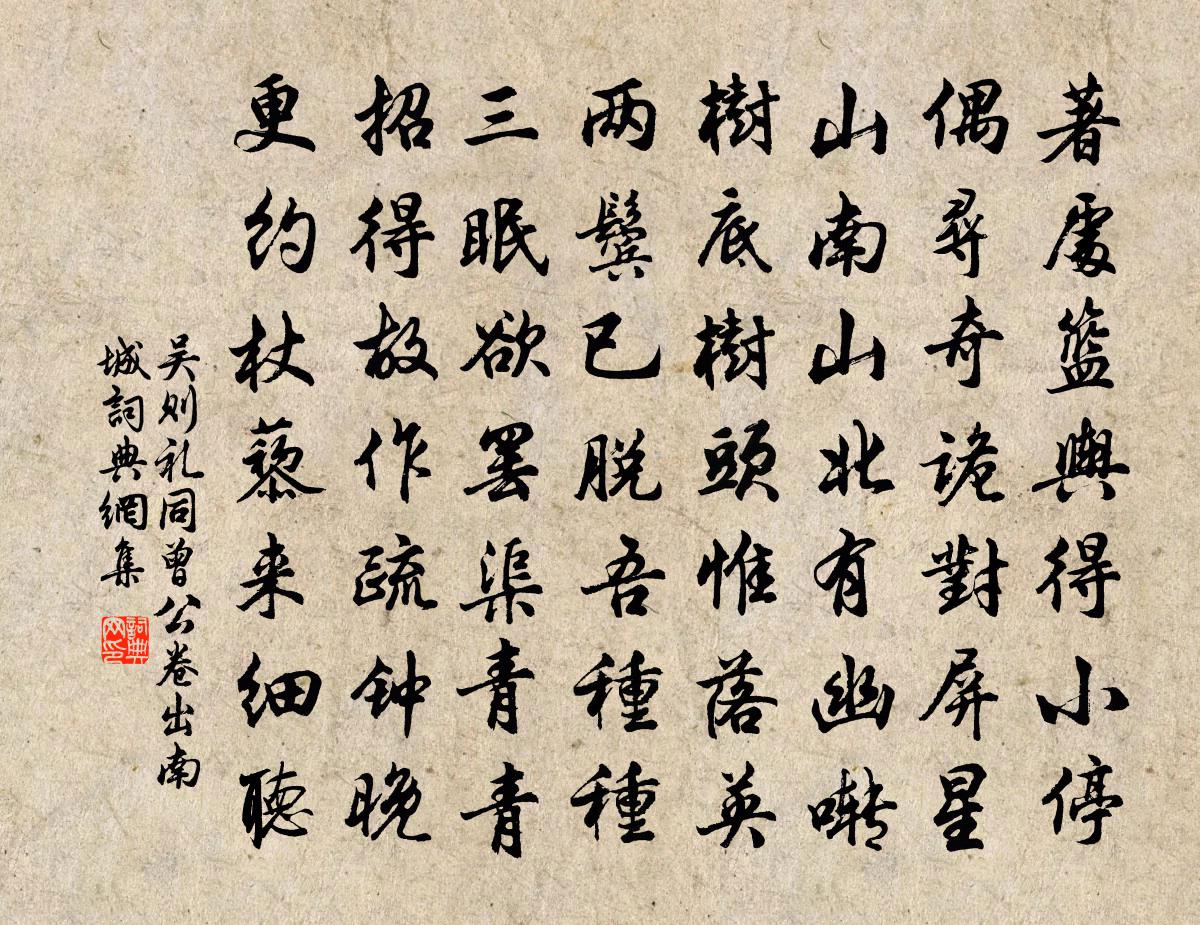 著處籃輿得小停
偶尋奇詭對屏星
山南山北有幽囀
樹底樹頭惟落英
两鬢已脱吾種種
三眠欲罢渠青青
招得故作疏钟晚
更约杖藜来细聽
吴则礼同曾公卷出南
城詞典網集
詞典
网印